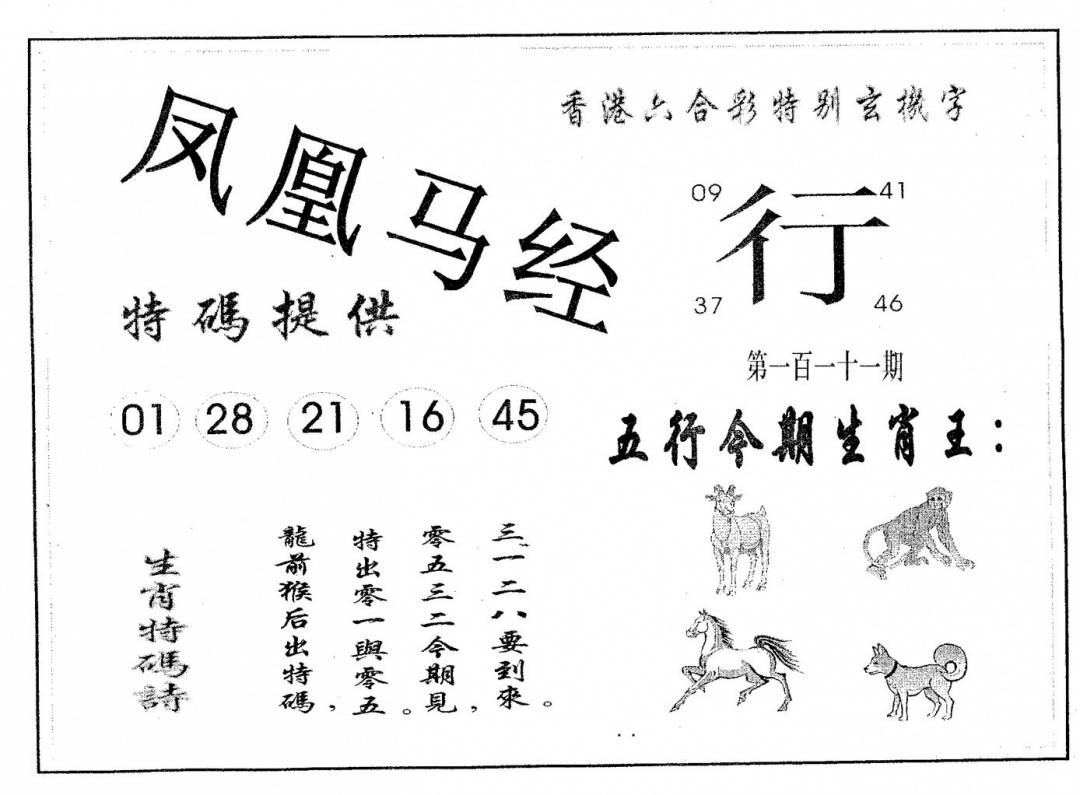 凤凰马经
香港六合彩特别玄機字
09 41
行
37 46
特碼提供
第一百一十一期
01 28 21 16 45
五行今期生肖王：
生肖特碼詩
龍前猴后出特碼，
特出零一與零五。
零五三二今期見，
三一二八要到來。